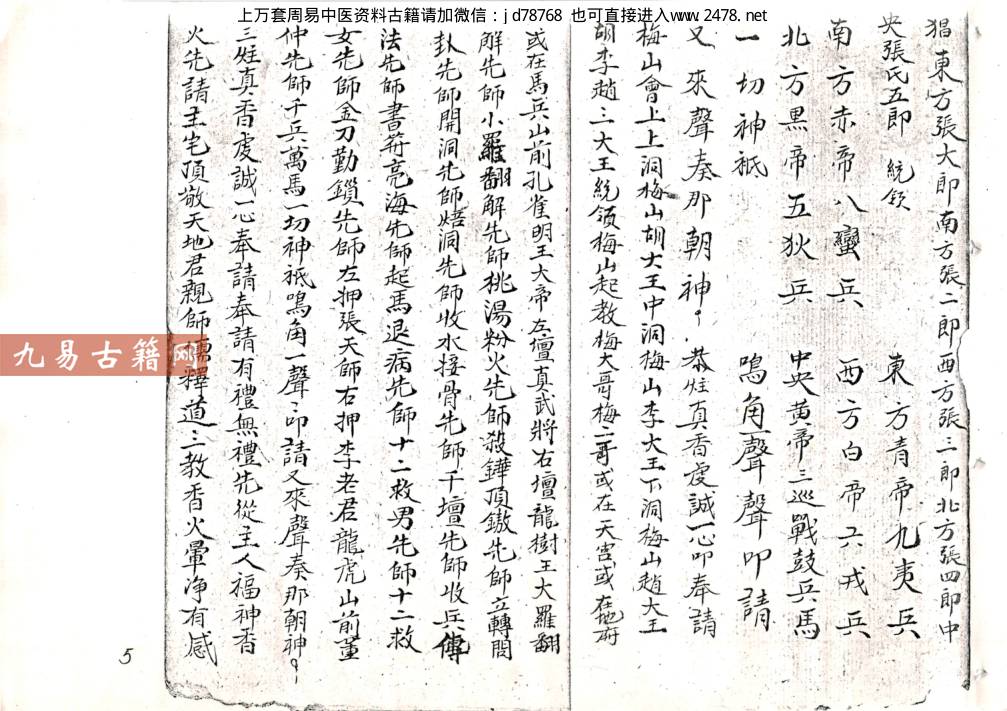 上万套周易中医资料古籍请加微信：jd78768 也可直接进入www.2478.net
猖東方張大郎南方張二郎西方張三郎北方張四郎中
央張氏五郎 統領 東方青帝九夷兵
南方赤帝八蠻兵 西方白帝六戎兵
北方黑帝五狄兵 中央黄帝三巡戰鼓兵馬
一切神祇 鳴角一聲聲叩請
又來聲奏那朝神 恭炷真香虔誠一心叩奉請
梅山會上上洞梅山胡大王中洞梅山李大王下洞梅山趙大王
胡李趙三大王統領梅山起教梅大哥梅二哥或在天宫或在地府
或在馬兵山前孔雀明王大帝左壇真武將右壇龍樹王大羅翻
解先師小羅翻解先師桃湯粉火先師殺鏵頂鏊先師立轉閗
卦先師開洞先師 洞先師收水接骨先師千壇先師收兵傳
法先師書符亮海先師起馬退病先師十二救男先師十二救
女先師金刀勤鎖先師左押張天師右押李老君龍虎山前董
仲先師千兵萬馬一切神祇鳴角一聲聲叩請又來聲奏那朝神
三炷真香虔誠一心奉請奉請有禮無禮先從主人福神香
火先請主宅頂敬天地君親師儒釋道三教香火暈净有感
九易古籍网
5